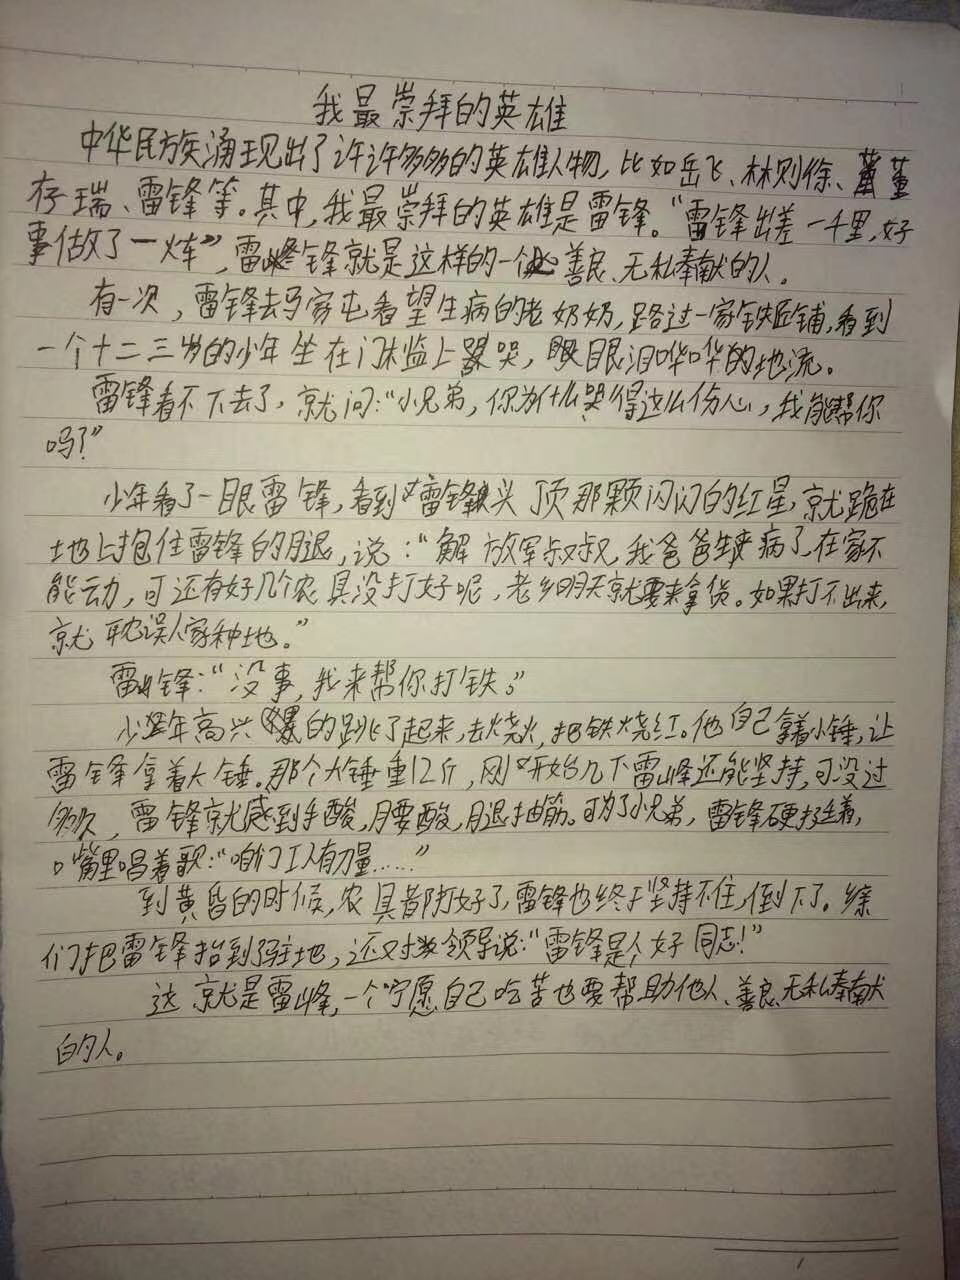 我最崇拜的英雄
中华民族涌现出了许许多多的英雄人物，比如岳飞、林则徐、董
存瑞、雷锋等。其中，我最崇拜的英雄是雷锋。“雷锋出差一千里，好
事做了一火车”，雷锋就是这样的一个善良、无私奉献的人。
有一次，雷锋去马家屯看望生病的老奶奶，路过一家铁匠铺，看到
一个十二三岁的少年坐在门槛上哭，眼泪哗哗的地流。
雷锋看不下去了，就问：“小兄弟，你为什么哭得这么伤心，我能帮你
吗？”
少年看了一眼雷锋，看到雷锋头顶那颗闪闪的红星，就跪在
地上抱住雷锋的腿，说：“解放军叔叔，我爸爸生病了，在家不
能动，可还有好几个农具没打好呢，老乡明天就要来拿货。如果打不出来，
就耽误人家种地。”
雷锋：“没事，我来帮你打铁。”
少年高兴的跳了起来，去烧火，把铁烧红。他自己拿着小锤，让
雷锋拿着大锤。那个大锤重12斤，刚开始几下雷峰还能坚持，可没过
多久，雷锋就感到手酸，腰酸，腿抽筋。可为了小兄弟，雷锋硬挺着，
口嘴里唱着歌：“咱们工人有力量……”
到黄昏的时候，农具都打好了，雷锋也终于坚持不住，倒下了。
们把雷锋抬到驻地，还对领导说：“雷锋是个好同志！”
这就是雷峰，一个宁愿自己吃苦也要帮助他人、善良、无私奉献
的人。